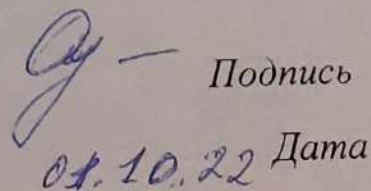 Подпись
01.10.22 Дата